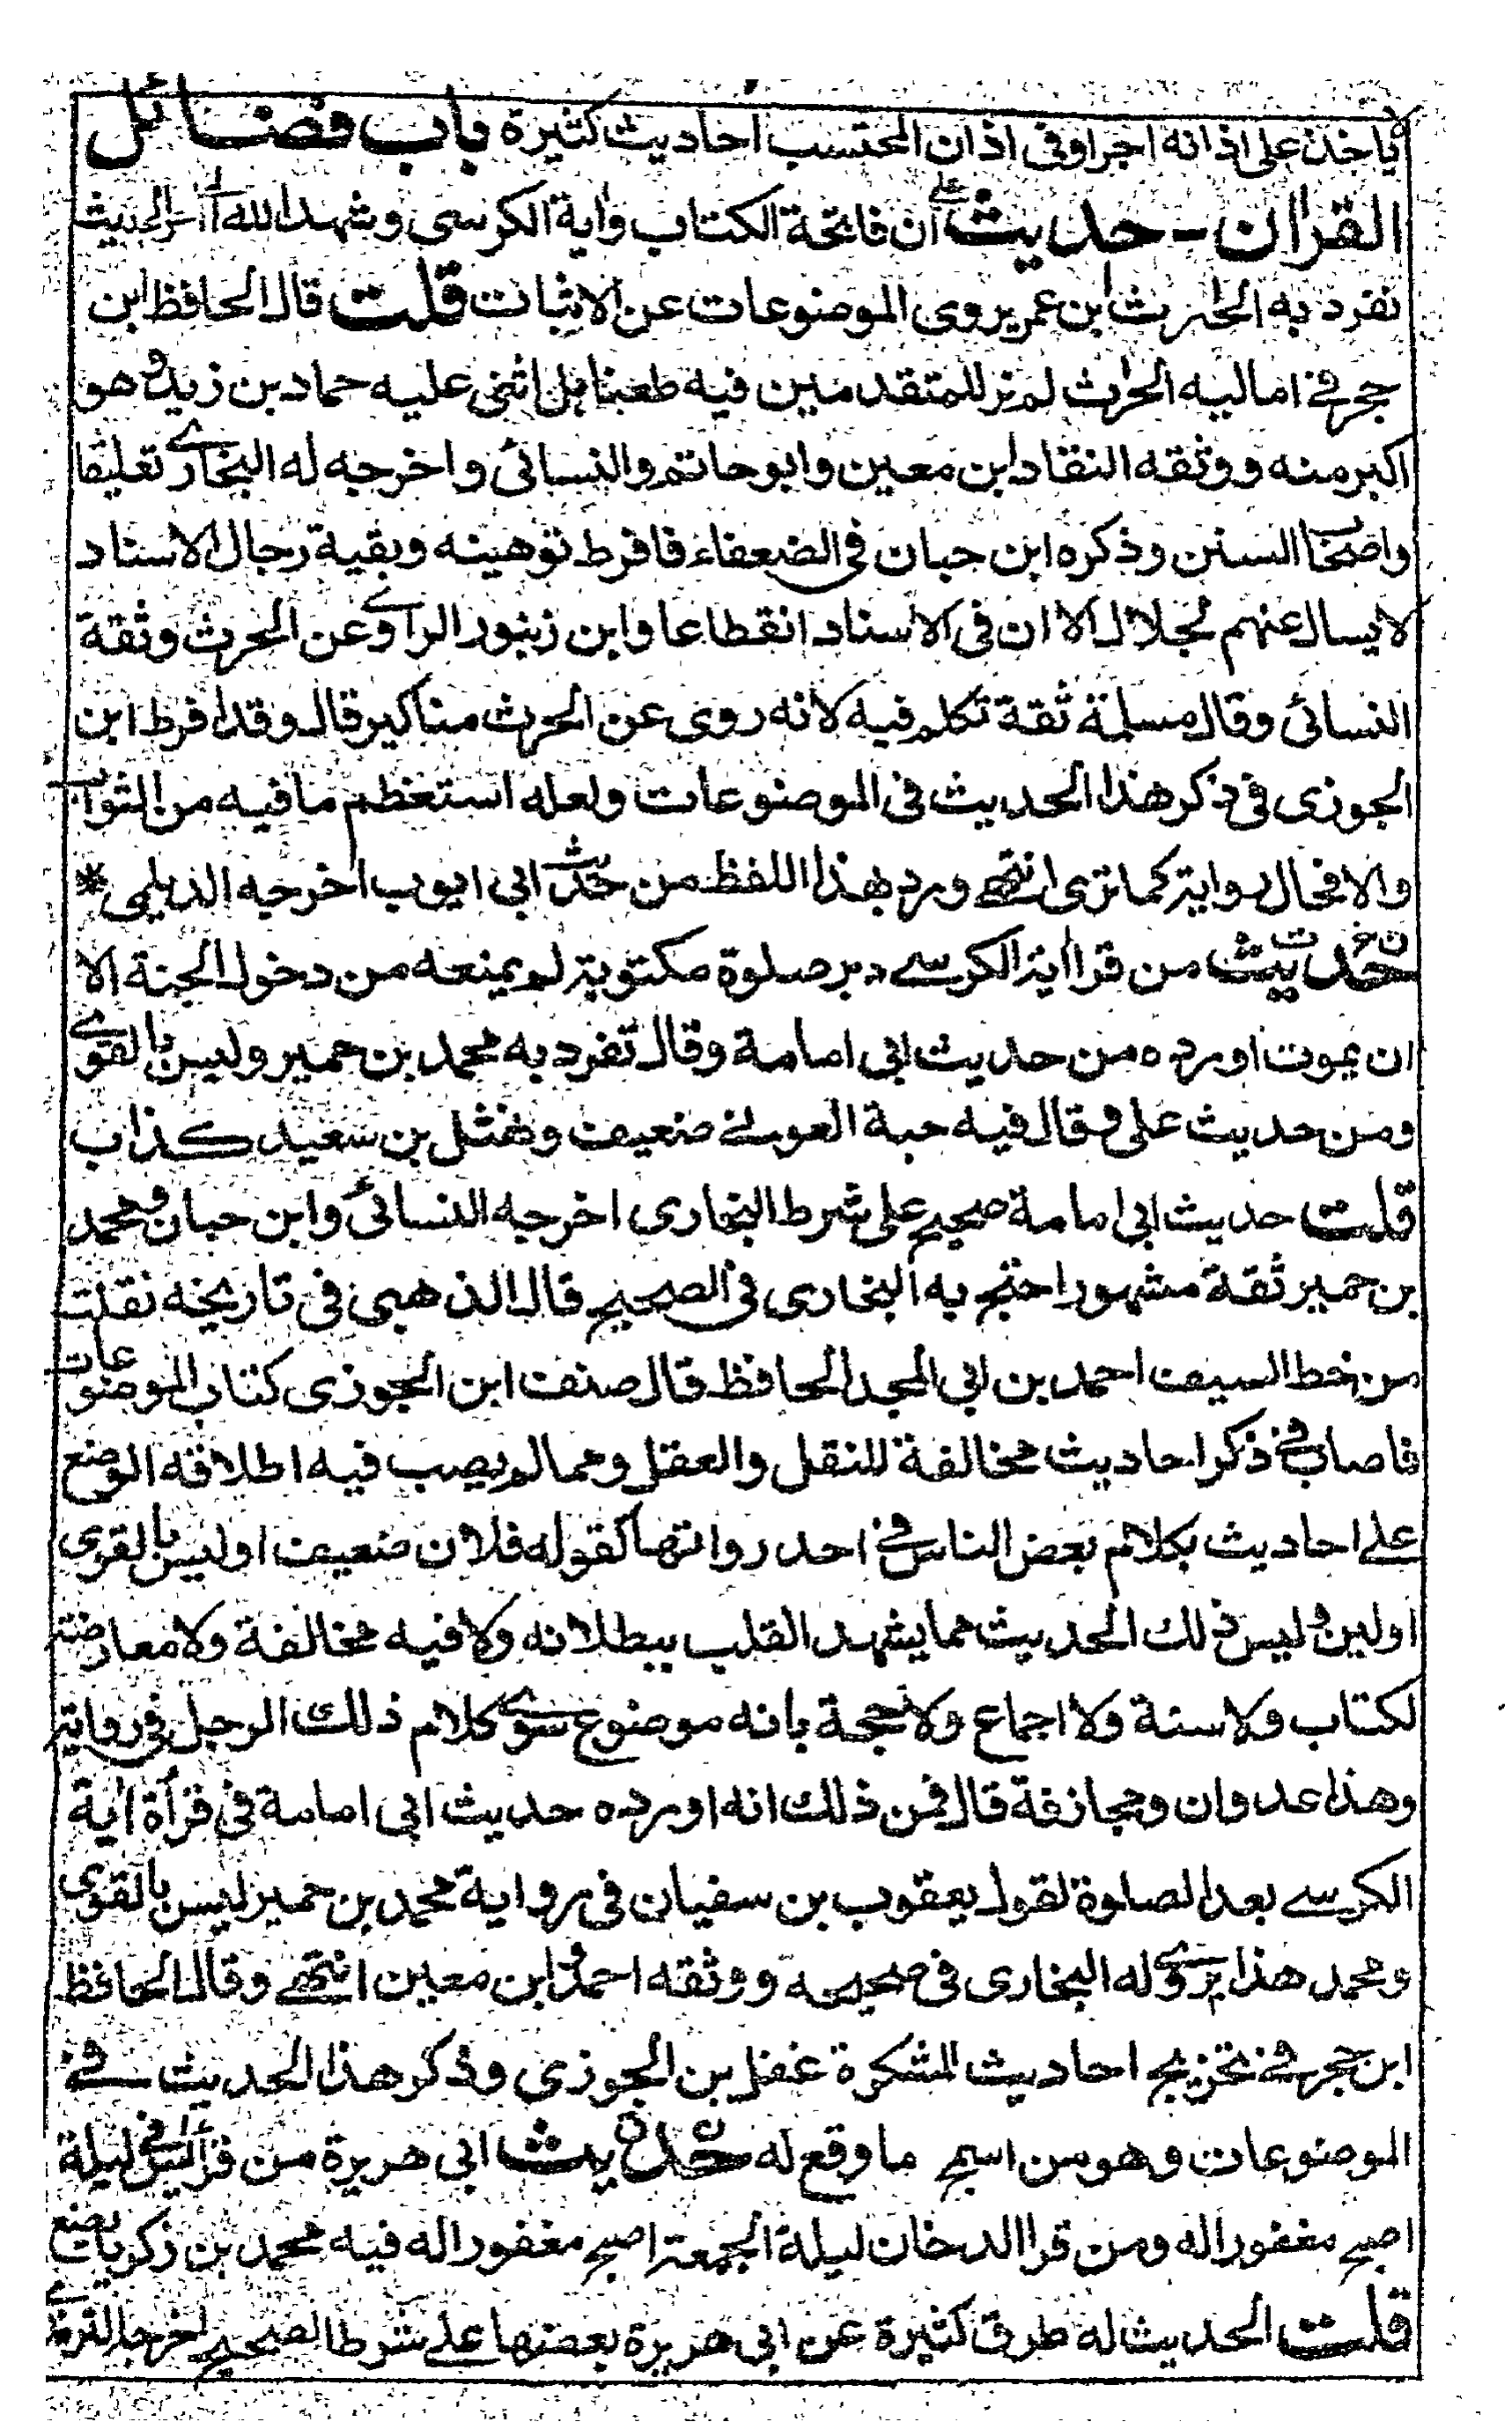 يأخذ على اذانه اجرا وفى اذان المحتسب احاديث كثيرة باب فضائل
القرآن - حديث علي ان فاتحة الكتاب وآية الكرسى وشهد الله الى آخر الحديث
تفرد به الحرث ابن عمير يروى الموضوعات عن الاثبات قلت قال الحافظ ابن
حجر فى اماليه الحرث لم نر للمتقدمين فيه طعنا بل اثنى عليه حماد بن زيد وهو
اكبر منه ووثقه النقاد ابن معين وابو حاتم والنسائى واخرجه له البخارى تعليقا
واصحاب السنن وذكره ابن حبان فى الضعفاء فافرط توهينه وبقية رجال الاسناد
لا يسال عنهم لجلال الا ان فى الاسناد انقطاعا وابن زنبور الراوى عن الحرث وثقة
النسائى وقال مسلمة ثقة تكلم فيه لانه روى عن الحرث مناكير قال وقد افرط ابن
الجوزى فى ذكر هذا الحديث فى الموضوعات ولعله استعظم ما فيه من الثواب
والا فحال رواية كما ترى انتهى وورد بهذا اللفظ من حديث ابى ايوب اخرجه الديلمى *
حديث من قرا اية الكرسى دبر صلوة مكتوبة لم يمنعه من دخول الجنة الا
ان يموت اورده من حديث ابى امامة وقال تفرد به محمد بن حمير وليس بالقوى
ومن حديث على وقال فيه حبة العرنى ضعيف ونهشل بن سعيد كذاب
قلت حديث ابى امامة صحيح على شرط البخارى اخرجه النسائى وابن حبان ومحمد
بن حمير ثقة مشهور احتج به البخارى فى الصحيح قال الذهبى فى تاريخه نقلت
من خط السيف احمد بن ابى المجد الحافظ قال صنف ابن الجوزى كتاب الموضوعات
فاصاب فى ذكر احاديث مخالفة للنقل والعقل ومما لم يصب فيه اطلاقه الوضع
على احاديث بكلام بعض الناس فى احد رواتها كقوله فلان ضعيف او ليس بالقوى
او لين وليس ذلك الحديث مما يشهد القلب ببطلانه ولا فيه مخالفة ولا معارضة
لكتاب ولا سنة ولا اجماع ولا حجة بانه موضوع سوى كلام ذلك الرجل فى رواية
وهذا عدوان ومجازفة قال فمن ذلك انه اورده حديث ابى امامة فى قرأة آية
الكرسى بعد الصلوة لقول يعقوب بن سفيان فى رواية محمد بن حمير ليس بالقوى
ومحمد هذا يروى له البخارى فى صحيحه ووثقه احمد وابن معين انتهى وقال الحافظ
ابن حجر فى تخريج احاديث المشكوة غفل بن الجوزى وذكر هذا الحديث فى
الموضوعات وهو من اسمج ما وقع له حديث ابى هريرة من قرأ يس فى ليلة
اصبح مغفورا له ومن قرا الدخان ليلة الجمعة اصبح مغفورا له فيه محمد بن زكريا يضع
قلت الحديث له طرق كثيرة عن ابى هريرة بعضها على شرط الصحيح اخرجه الترمذى